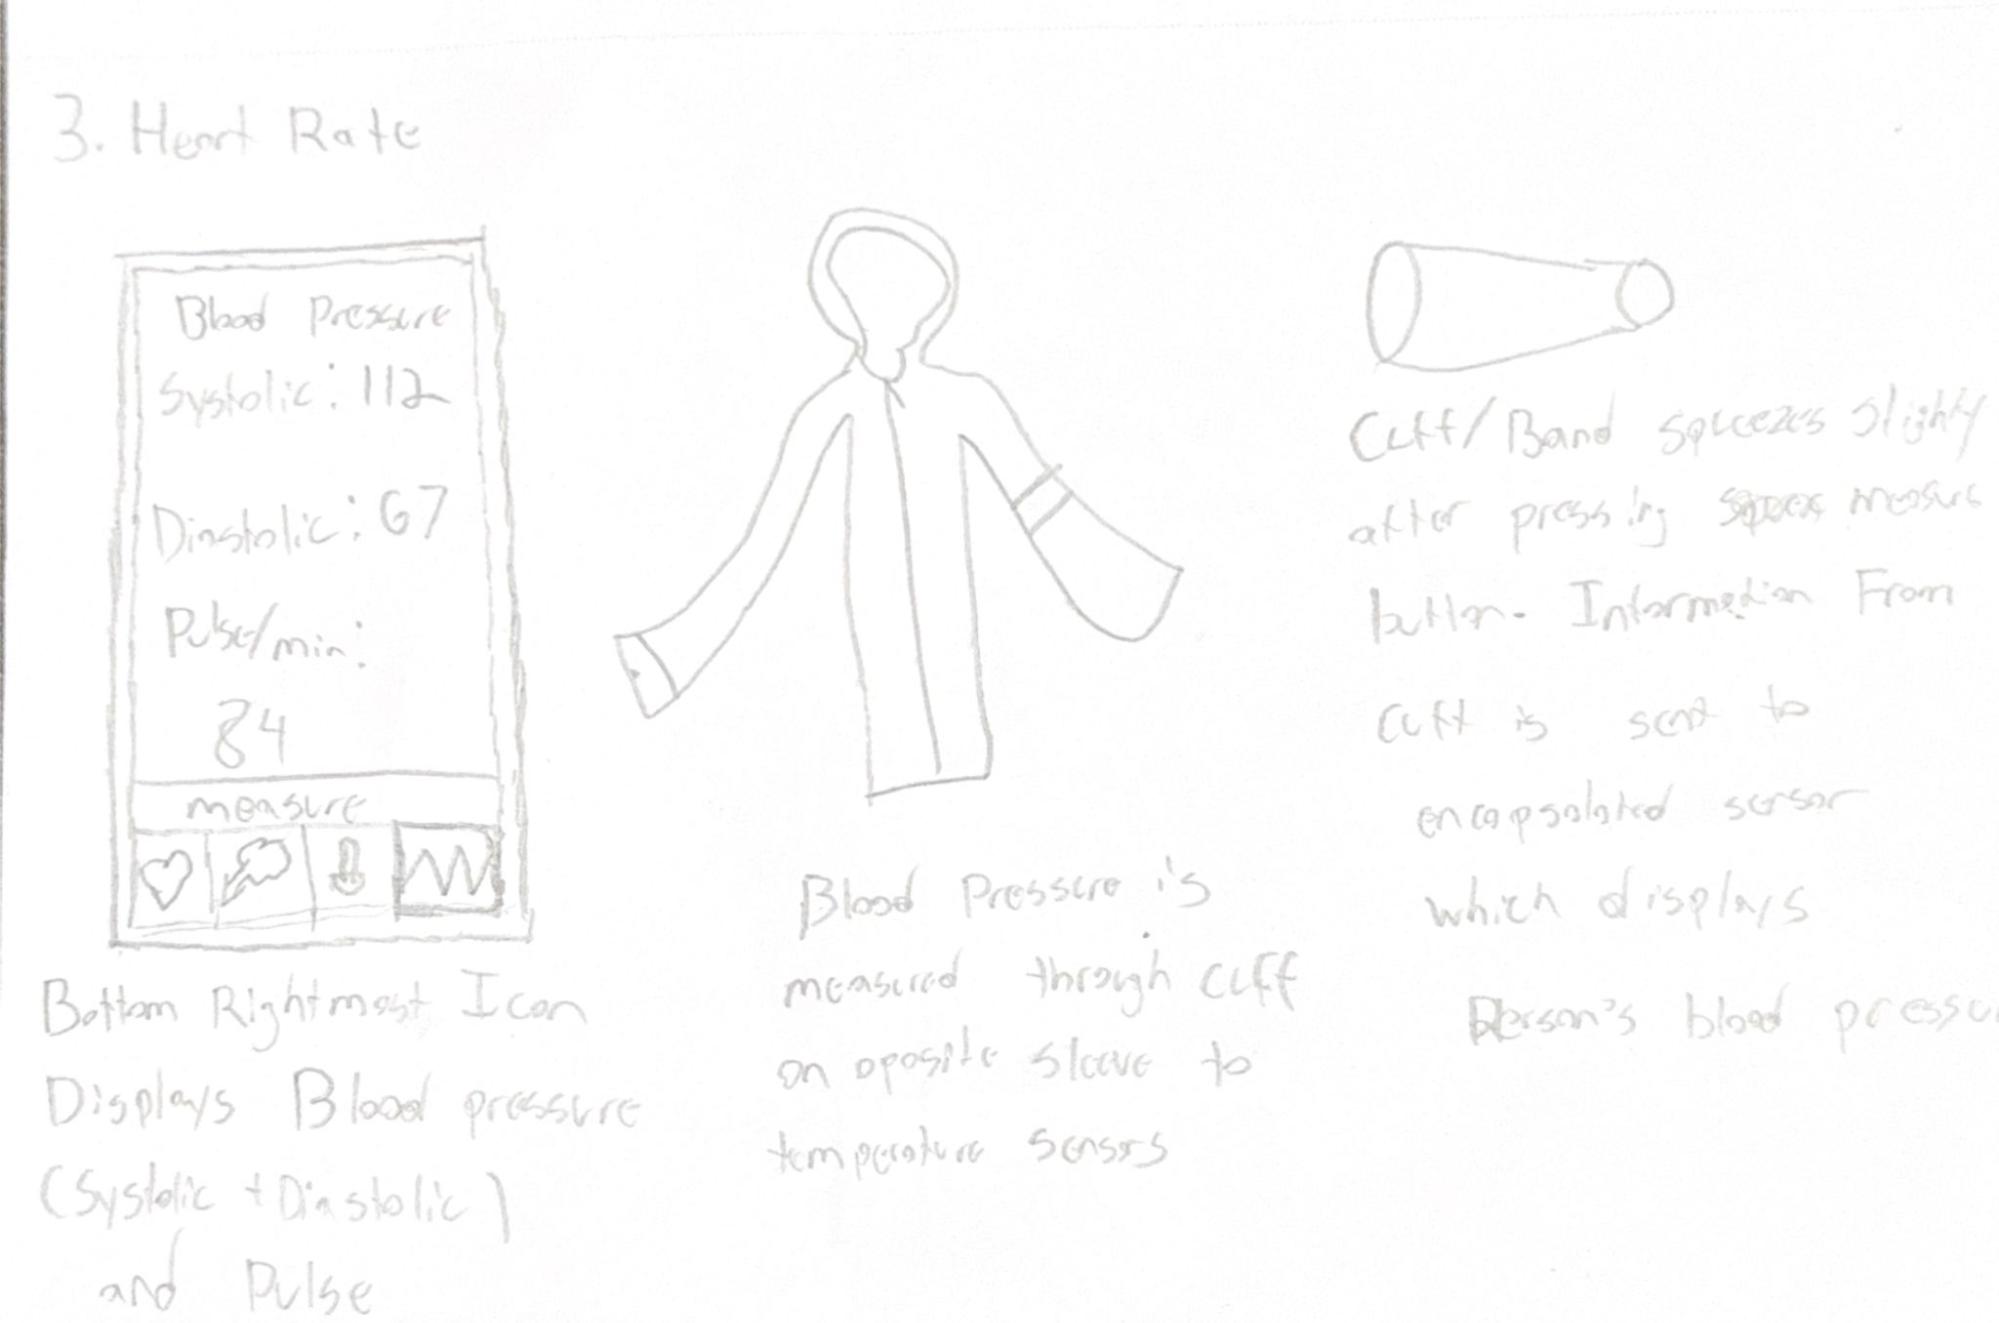 3. Heart Rate
Blood Pressure
Systolic: 112
Diastolic: 67
Pulse/min:
84
measure
Bottom Rightmost Icon
Displays Blood pressure
(Systolic + Diastolic)
and Pulse
Blood Pressure is
measured through cuff
on oposite sleeve to
temperature sensors
Cuff/Band squeezes slightly
after pressing measure
button. Information From
cuff is sent to
encapsolated sensor
which displays
Person's blood pressu